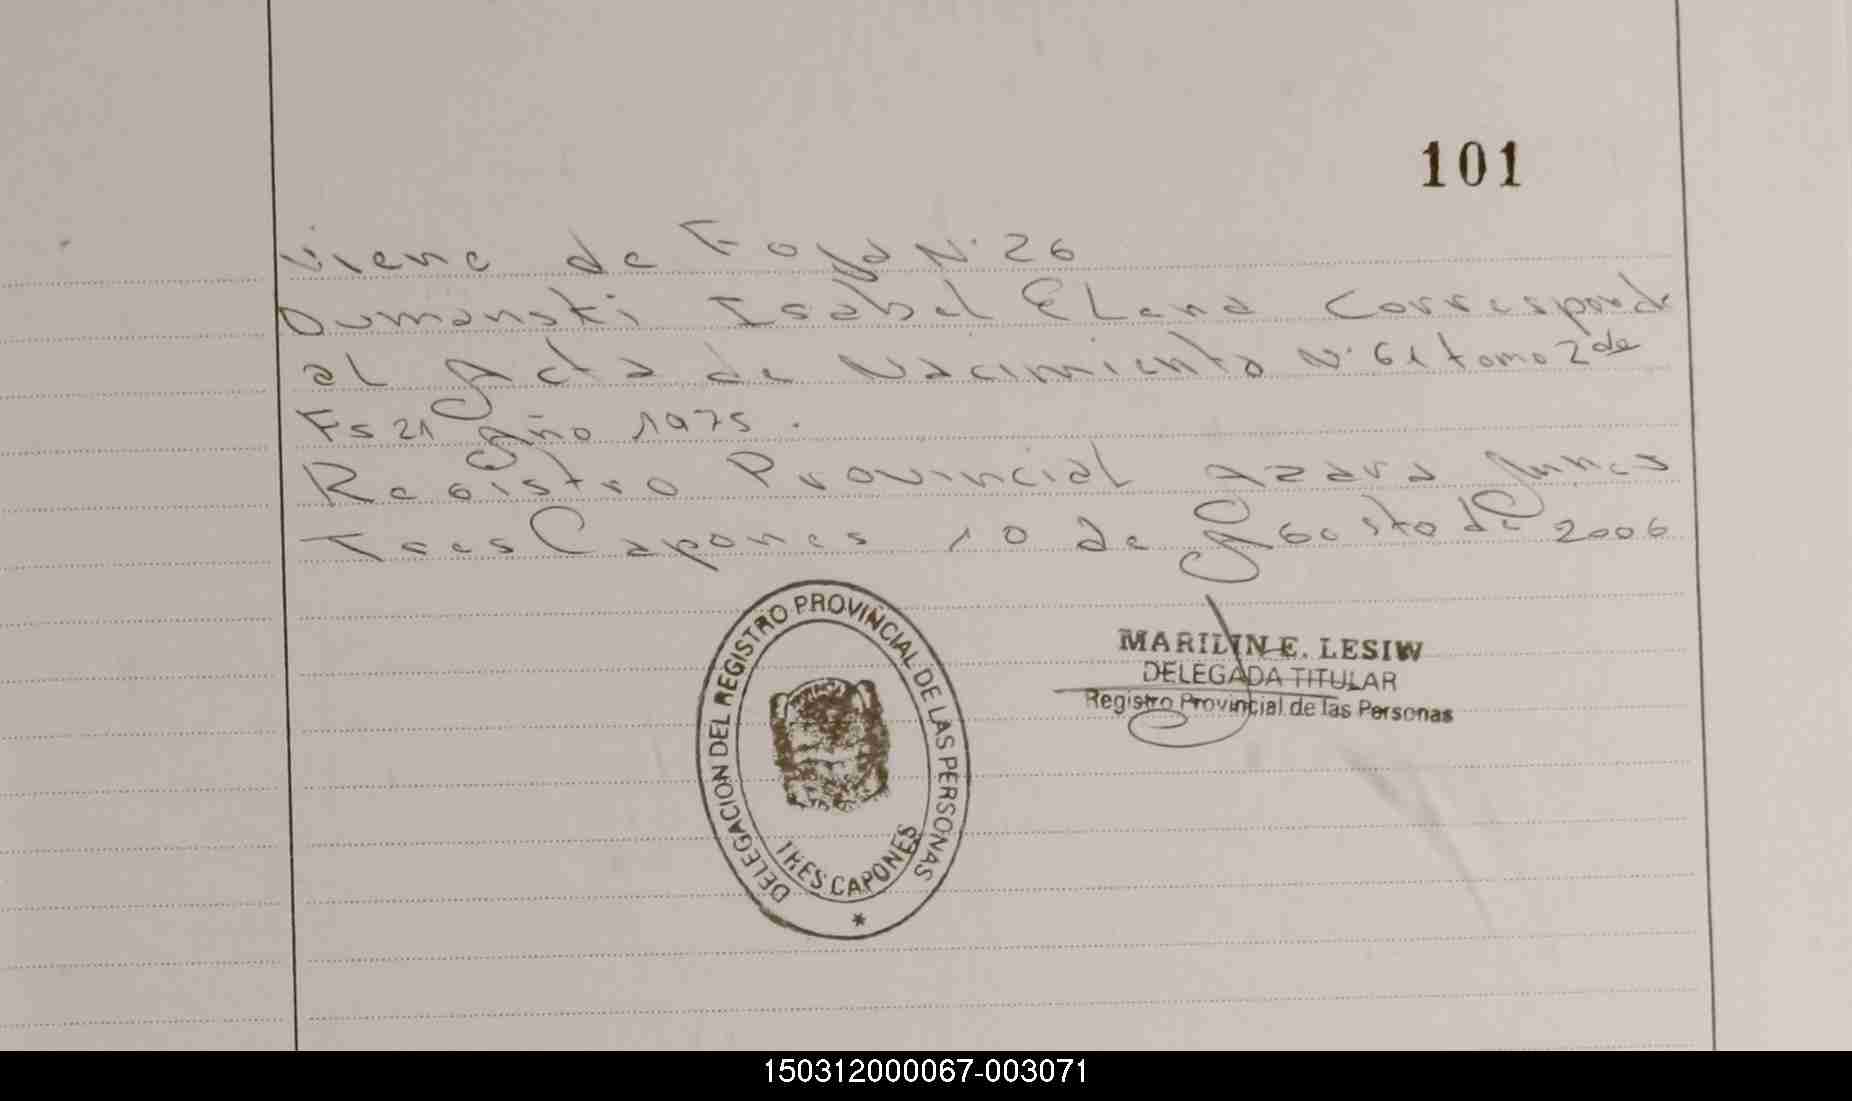 101
Viene de Foja N° 26
Dumanski Isabel Elena Corresponde
al Acta de Nacimiento N° 61 tomo 2 de
Fs 21 Año 1975.
Registro Provincial Azara Anexo
Tres Capones 10 de Agosto de 2006
DELEGACION DEL REGISTRO PROVINCIAL DE LAS PERSONAS
TRES CAPONES
MARILIN E. LESIW
DELEGADA TITULAR
Registro Provincial de las Personas
150312000067-003071